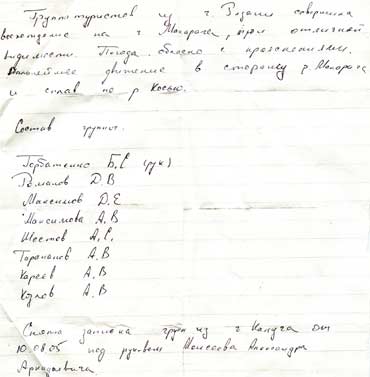 Группа туристов из г. Рязани совершила
восхождение на г. Манарага, при отличной
видимости. Погода облачно с прояснениями.
движение в сторону р. Манарага
и сплав по р Косью.
Состав группы.
Горбатенко Б.С (рук)
Романов Д.В
Максимов Д.Е
Максимова А.В
Шестов А.С.
А.В
Кареев А.В
Козлов А.В
Снята записка групп из г Калуга от
10.08.05 под руковом Моисеева Александра
Аркадьевича